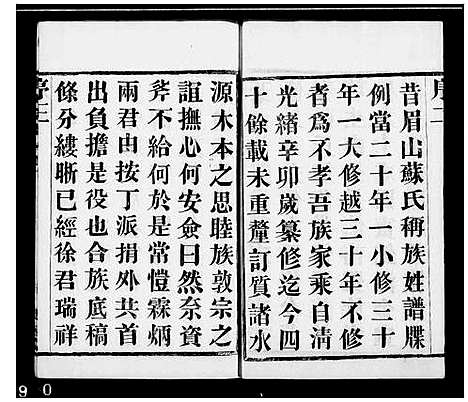 昔眉山蘇氏稱族姓譜牒
例當二十年一小修三十
年一大修越三十年不修
者為不孝吾族家乘自清
光緒辛卯歲纂修迄今四
十餘載未重釐訂質諸水
源木本之思睦族敦宗之
誼撫心何安僉曰然奈資
斧不給何於是常愷霖炳
兩君由按丁派捐外共首
出負擔是役也合族底稿
條分縷晰已經徐君瑞祥
9 0